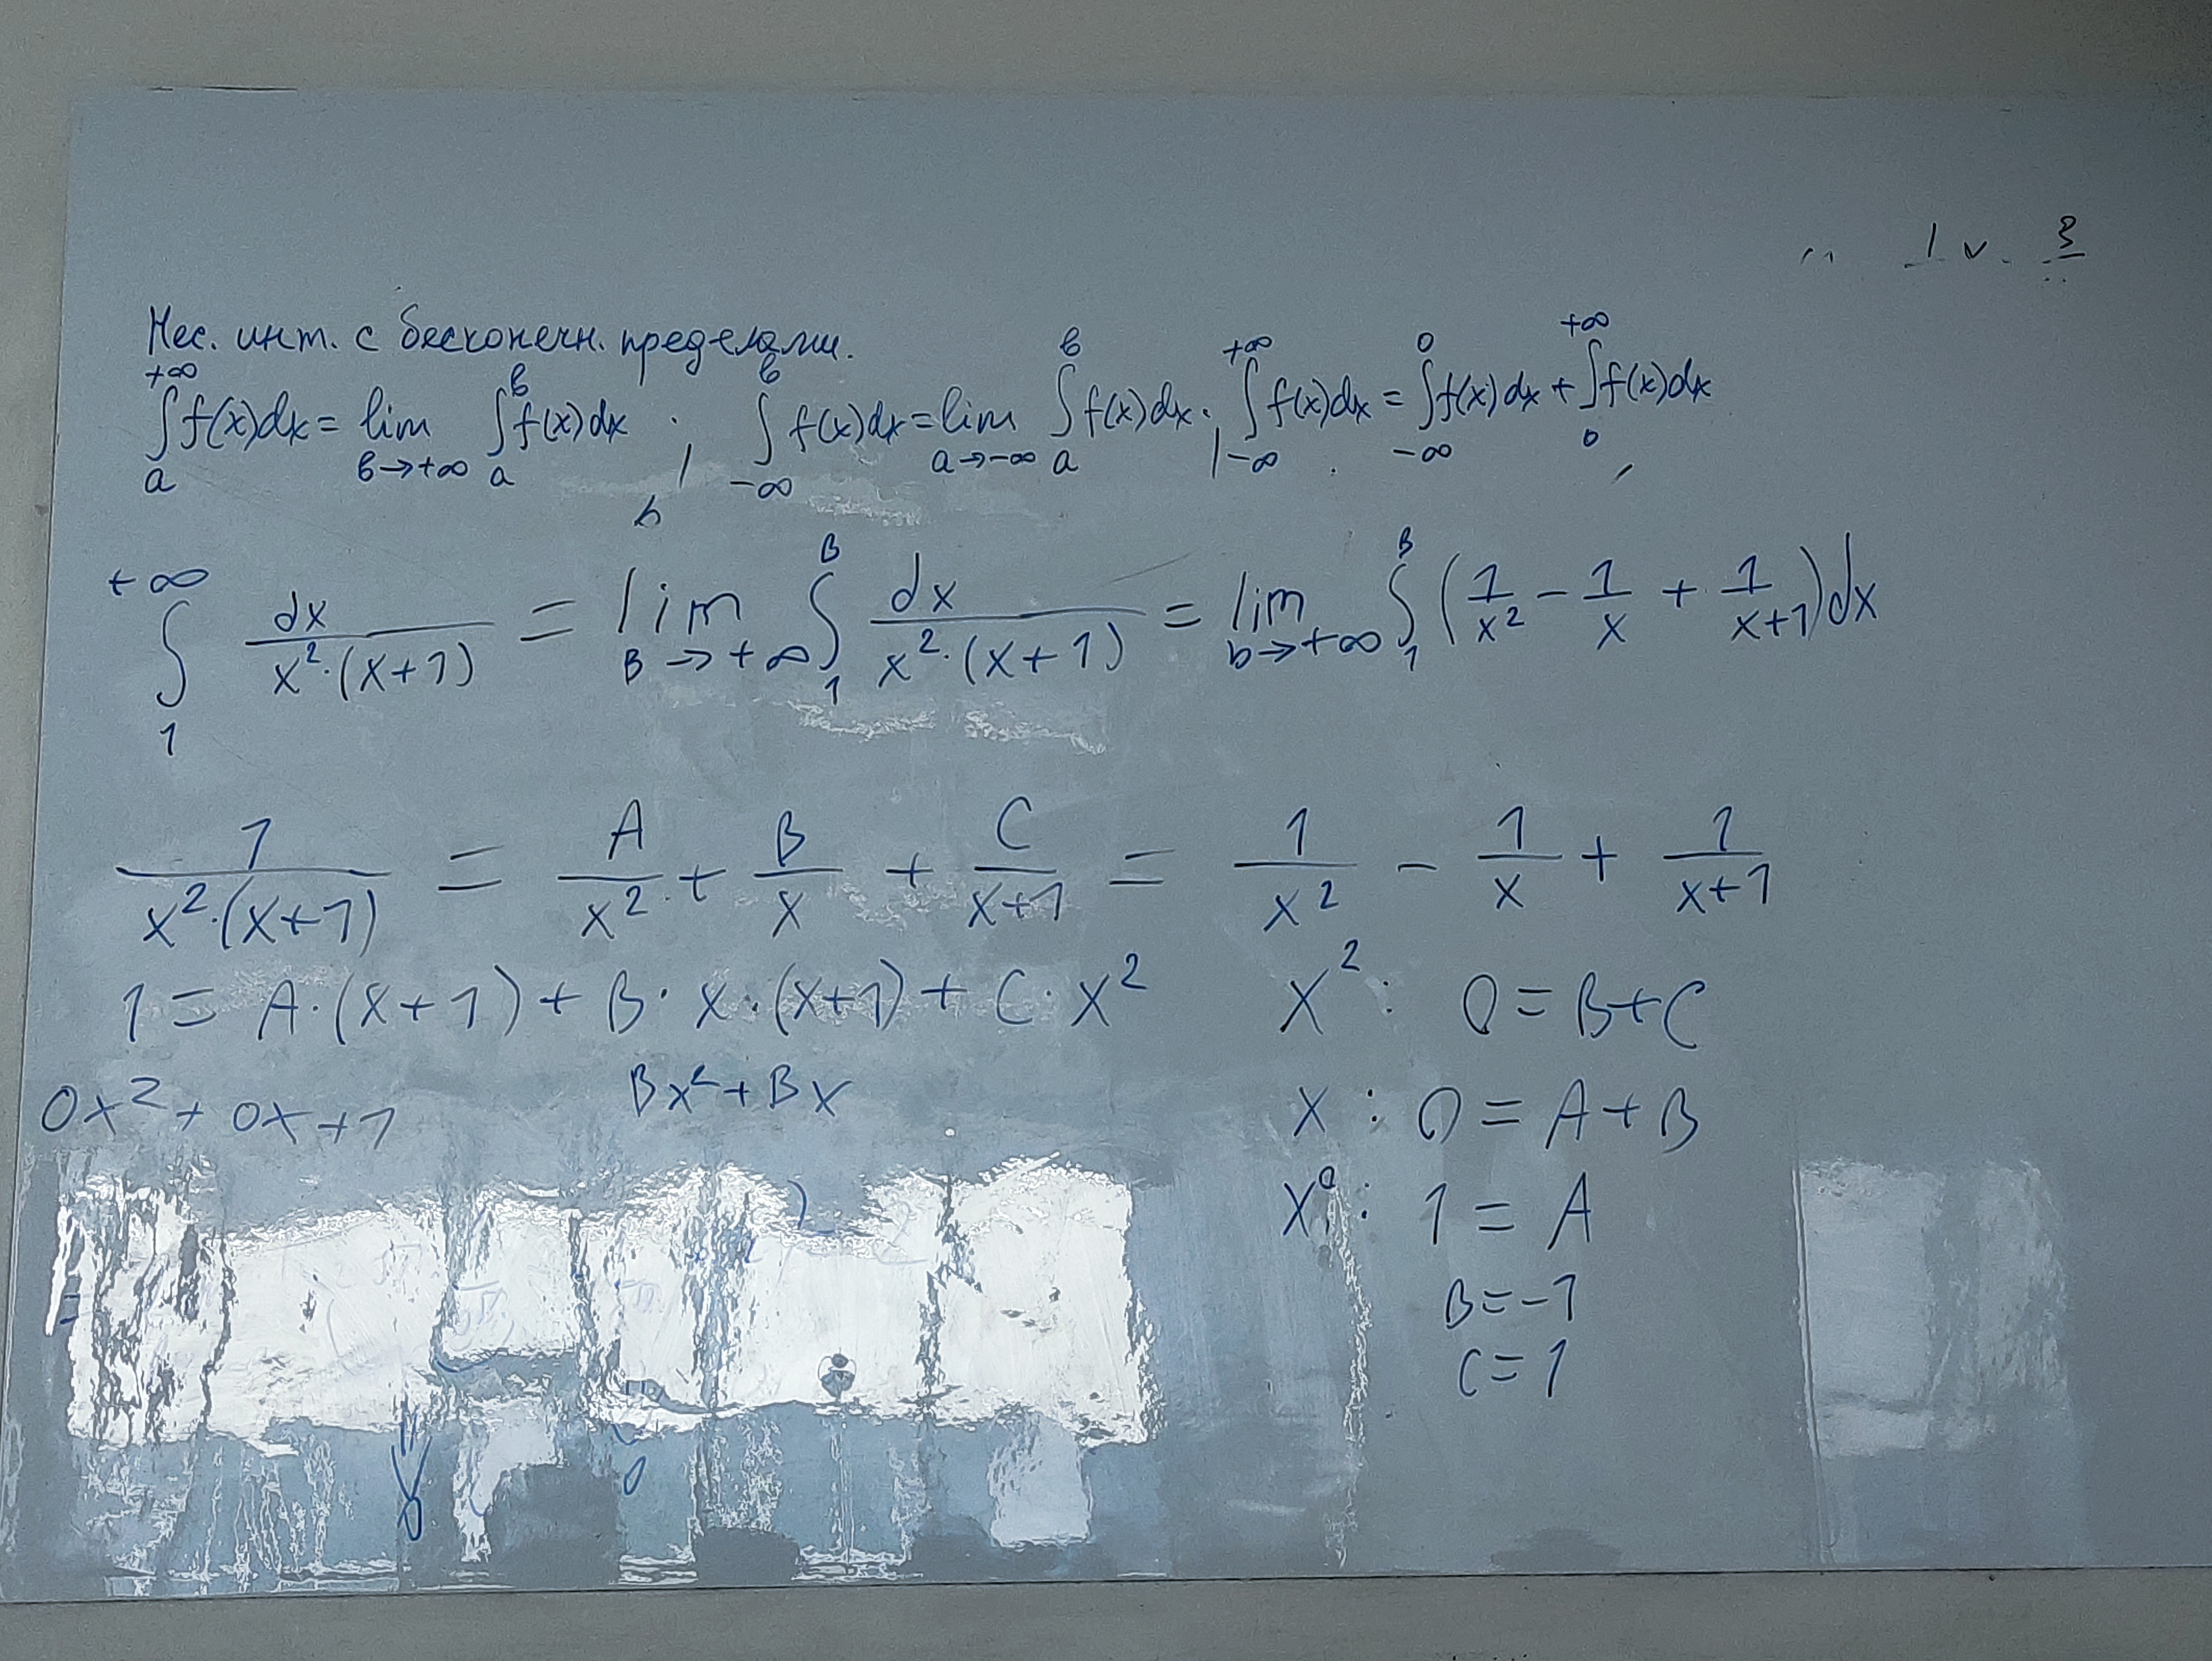 Нес. инт. с бесконечн. пределами.
∫ₐ^{+∞} f(x)dx = lim_{в→+∞} ∫ₐ^в f(x)dx ; ∫_{-∞}^в f(x)dx = lim_{a→-∞} ∫ₐ^в f(x)dx ; ∫_{-∞}^{+∞} f(x)dx = ∫_{-∞}^0 f(x)dx + ∫_0^{+∞} f(x)dx
∫_1^{+∞} dx/(x²·(x+1)) = lim_{B→+∞} ∫_1^B dx/(x²·(x+1)) = lim_{b→+∞} ∫_1^B (1/x² - 1/x + 1/(x+1))dx
1/(x²·(x+1)) = A/x² + B/x + C/(x+1) = 1/x² - 1/x + 1/(x+1)
1 = A·(x+1) + B·x·(x+1) + C·x²
0x² + 0x + 1
Bx² + Bx
x² : 0 = B+C
x : 0 = A+B
x⁰ : 1 = A
B = -1
C = 1